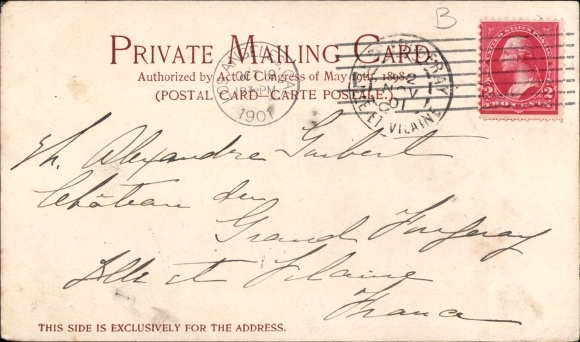 B
PRIVATE MAILING CARD
Authorized by Act of Congress of May 19th, 1898.
(POSTAL CARD-CARTE POSTALE.)
OCT 19
PM
1901
2
NOV
01
ET VILAINE
TWO CENTS
M. Alexandre Guibert
Château du
Grand Fougeray
Ille et Vilaine
France
THIS SIDE IS EXCLUSIVELY FOR THE ADDRESS.